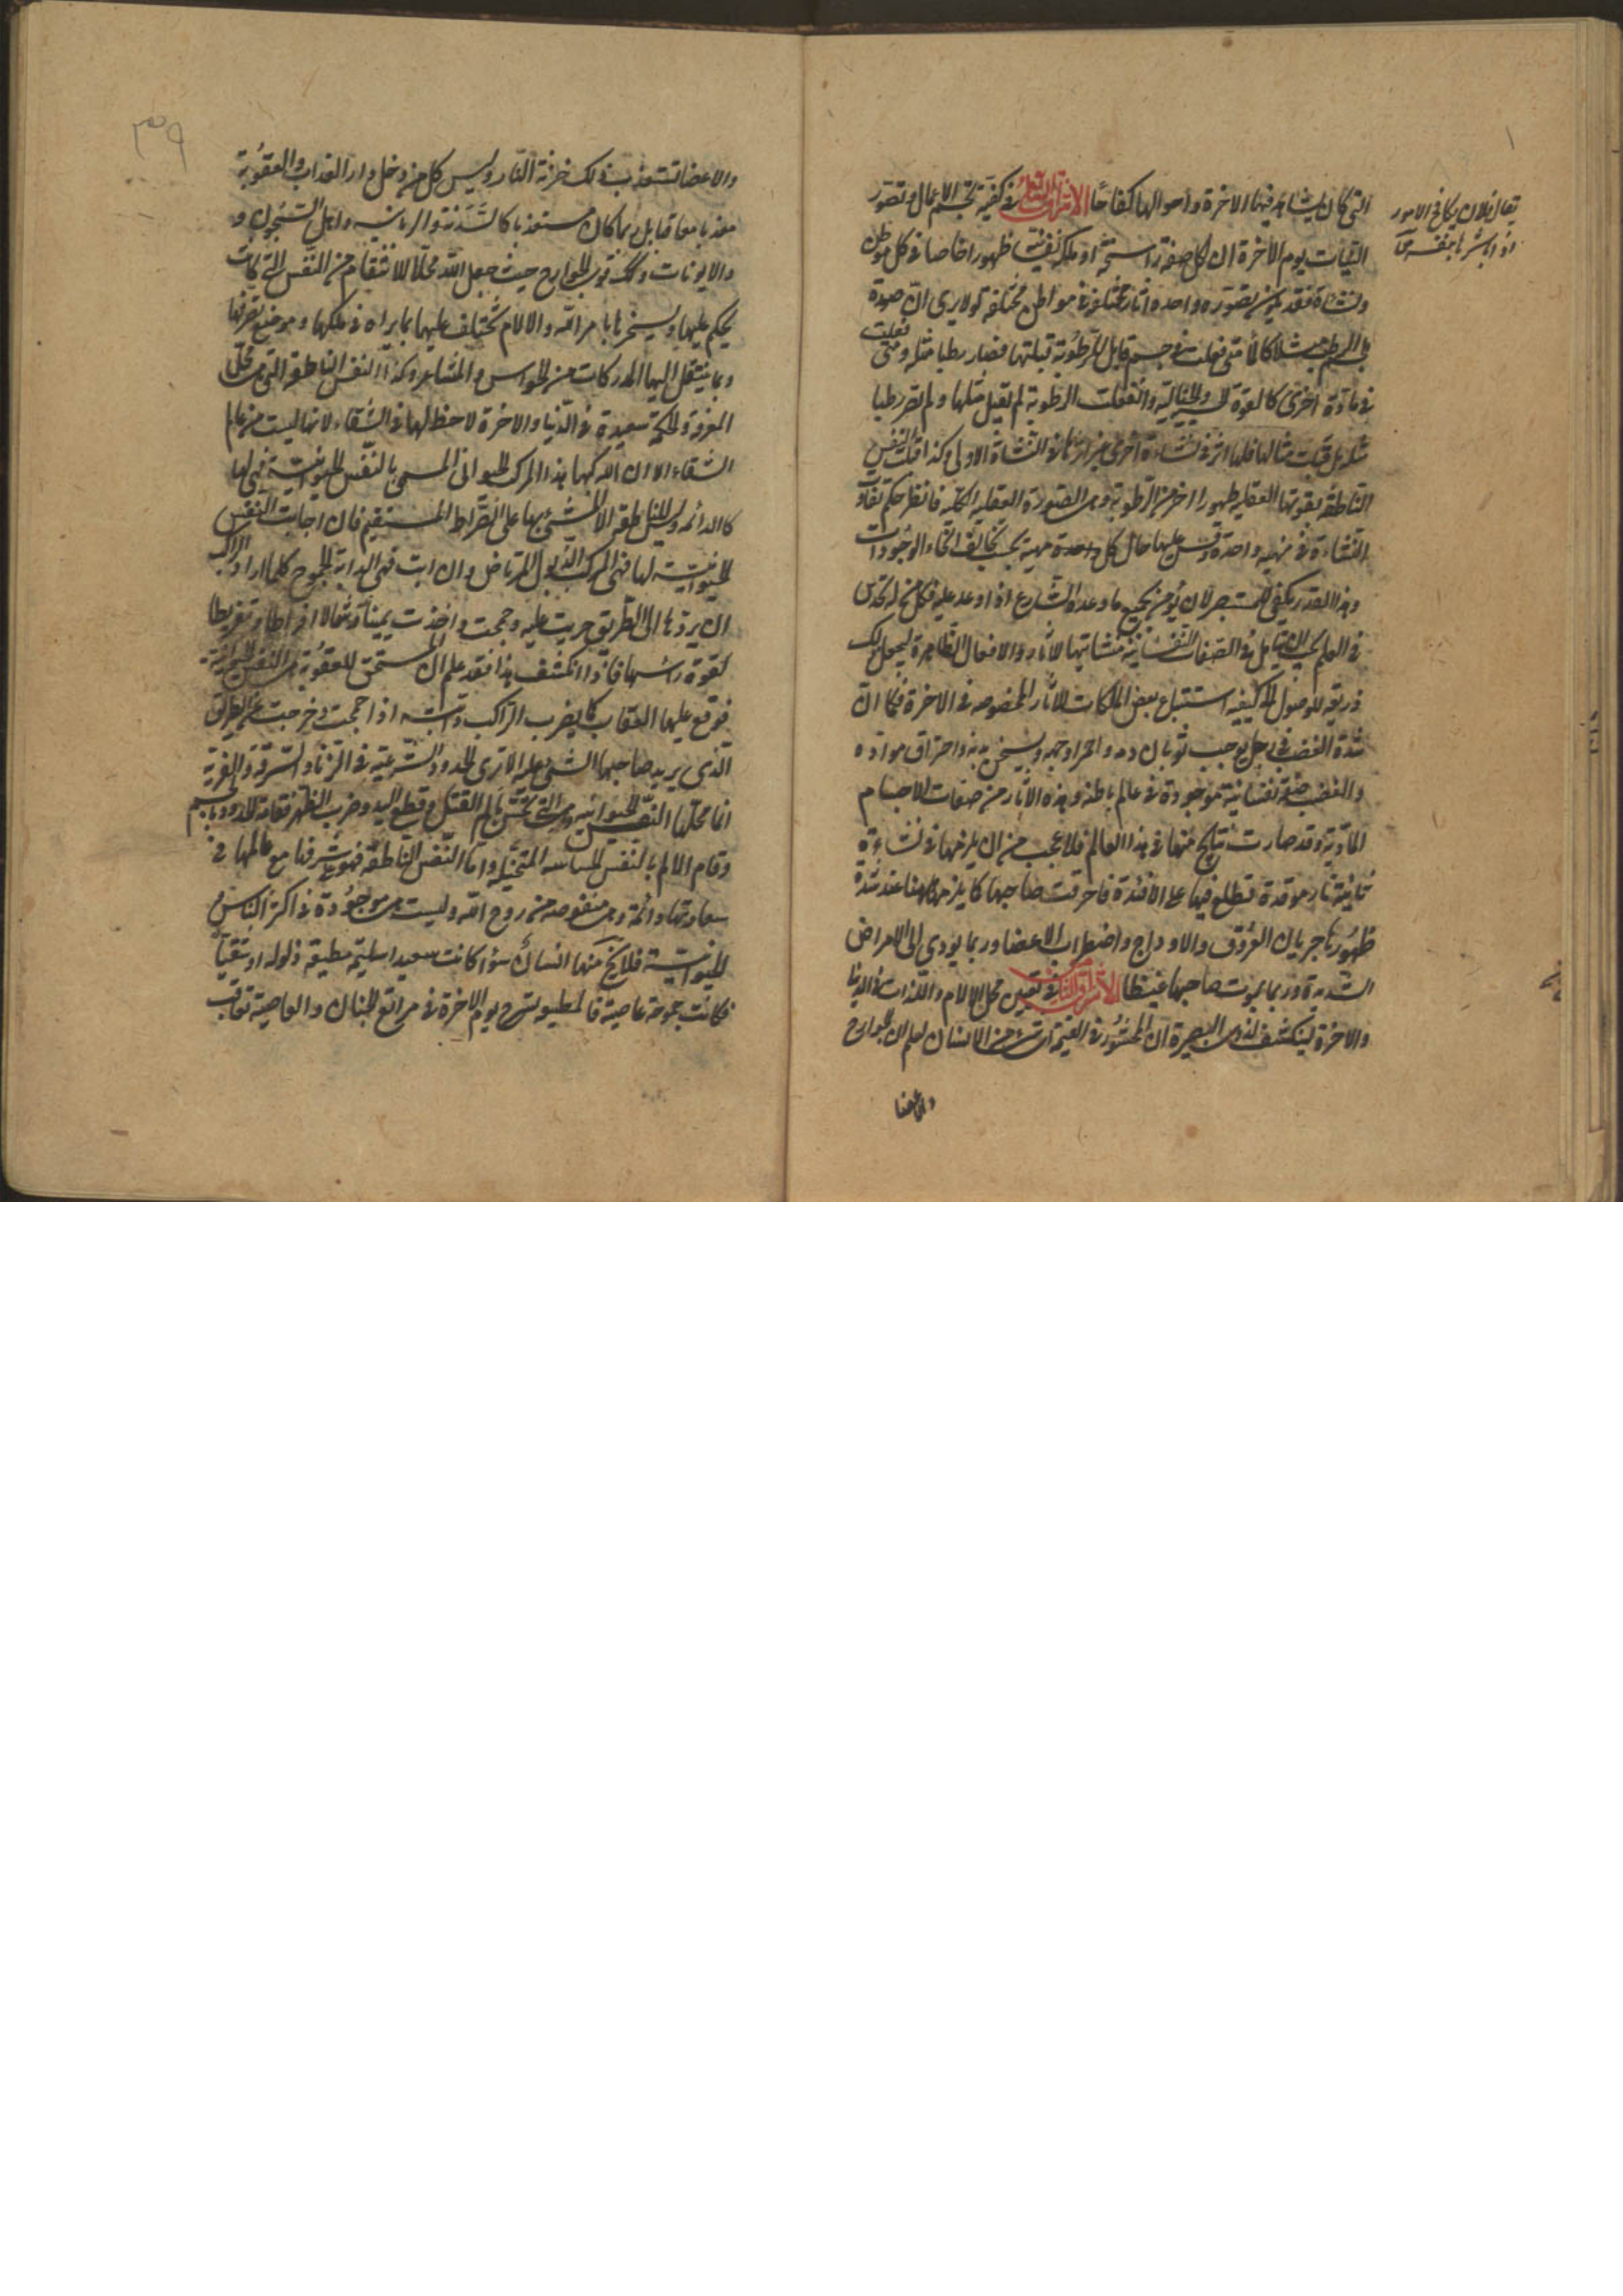 التي كان يشاهد فيها الاخرة واحوالها كفاحًا الاشراق التاسع في كيفية تجسم الاعمال وتصور
يقال فلان يكافح الامور
اذا باشرها بنفسه
النيات يوم الاخرة ان لكل صفة راسخة او ملكة نفسانية ظهورا خاصا في كل موطن
ونشأة فقد يكون لصورة واحدة اثار مختلفة في مواطن مختلفة اولا يرى ان صورة
الجسم الرطب مثلا كالماء متى فعلت في جسم قابل للرطوبة قبلتها فصار رطبا مثله ومتى فعلت
في مادة اخرى كالقوة الحسية والخيالية وانفعلت الرطوبة لم تقبل مثلها ولم تصر رطبا
مثله بل قبلت مثالها فلها اثر في نشاءة اخرى غير اثرها في النشأة الاولى وكذا قبلت النفس
الناطقة بقوتها العقلية ظهورا اخر من الرطوبة وهي الصورة العقلية الكلية فانظر حكم تفاوت
النشاءة في مهية واحدة وقس عليها حال كل واحدة مهية بحسب تخالف انحاء الوجودات
وهذا القدر يكفي للمستبصر لان يؤمن بجميع ما وعده الشارع اذا اوعد عليه فكل من له تحدس
في العلم يجب ان يتأمل في الصفات النفسانية منشأيتها للاثار والافعال الظاهرة ليجعل ذلك
ذريعة للوصول الى كيفية استتباع بعض الملكات للاثار المخصوصة في الاخرة فكما ان
شدة الغضب في رجل يوجب ثوران دمه واحمرار وجهه وتسخن بدنه واحتراق مواده
والغضب صفة نفسانية موجودة في عالم باطنه وهذه الاثار من صفات الاجسام
المادية وقد صارت نتايج منها في هذا العالم فلا عجب من ان يلزمها في نشاءة
ثانية نار موقدة تطلع فيها على الافئدة فاحرقت صاحبها كما يلزمها ههنا عند شدة
ظهورها جريان العروق والاوداج واضطراب الاعضا وربما يودى الى الامراض
الشديدة وربما يموت صاحبها غيظا الاشراق العاشر في تعيين محل الالام واللذات في الدنيا
والاخرة لينكشف لذوى البصيرة ان المحشور في القيمة اى شئ من الانسان اعلم ان الجوارح
والاعضا
٣٩
والاعضا تستعذب ذلك خزنة النار وليس كل من دخل دار العذاب والعقوبة
معذبا معاقبا بل ربما كان مستعذبا كالسدنة والزبانية واهل السجون و
والايونات وكذلك قوى الجوارح حيث جعل الله محلا للانتقام من النفس التي كانت
يحكم عليها ويسخرها بامر الله والالام تختلف عليها بما يراه في ملكها وموضع تصرفها
وبما ينتقل اليها المدركات من الحواس والمشاعر وكذا النفس الناطقة التي هي محل
المعرفة والحكمة سعيدة في الدنيا والاخرة لا حظ لها في الشقاء لانها ليست من عالم
الشقاء الا ان الله ركبها هذا المركب الحيوانى المسمى بالنفس الحيوانية فهي لها
كالدابة وليس للناطقة الا المشى بها على الصراط المستقيم فان اجابت النفس
الحيوانية لها فهي المركب الذلول المرتاض وان ابت فهي الدابة الجموح كلما اراد الراكب
ان يردها الى الطريق حرنت عليه وجمحت واخذت يمينا وشمالا افراطا وتفريطا
لقوة راسها فاذا انكشف هذا فقد علم ان المستحق للعقوبة هي النفس الحيوانية
فوقع عليها العقاب كما يضرب الراكب دابته اذا جمحت وخرجت عن الطريق
الذى يريد صاحبها المشى عليه الا ترى الحدود الشرعية في الزنا والسرقة والفرية
انما محلها النفس الحيوانية وهي التي تحس بالم القتل وقطع اليد وضرب الظهر فقامت الحدود بالجسم
وقام الالم بالنفس الحساسة المتخيلة واما النفس الناطقة فهي على شرفها مع عالمها في
سعادتها دائمة وهي منفوخة من روح الله وليست هي موجودة في اكثر الناس
الحيوانية فلا يخ منها انسان سواء كانت سعيدا سليمة مطيعة ذلولة او شقيا
فكانت جموحة عاصية فالمطيعة تسرح يوم الاخرة في مراتع الجنان والعاصية تعاقب